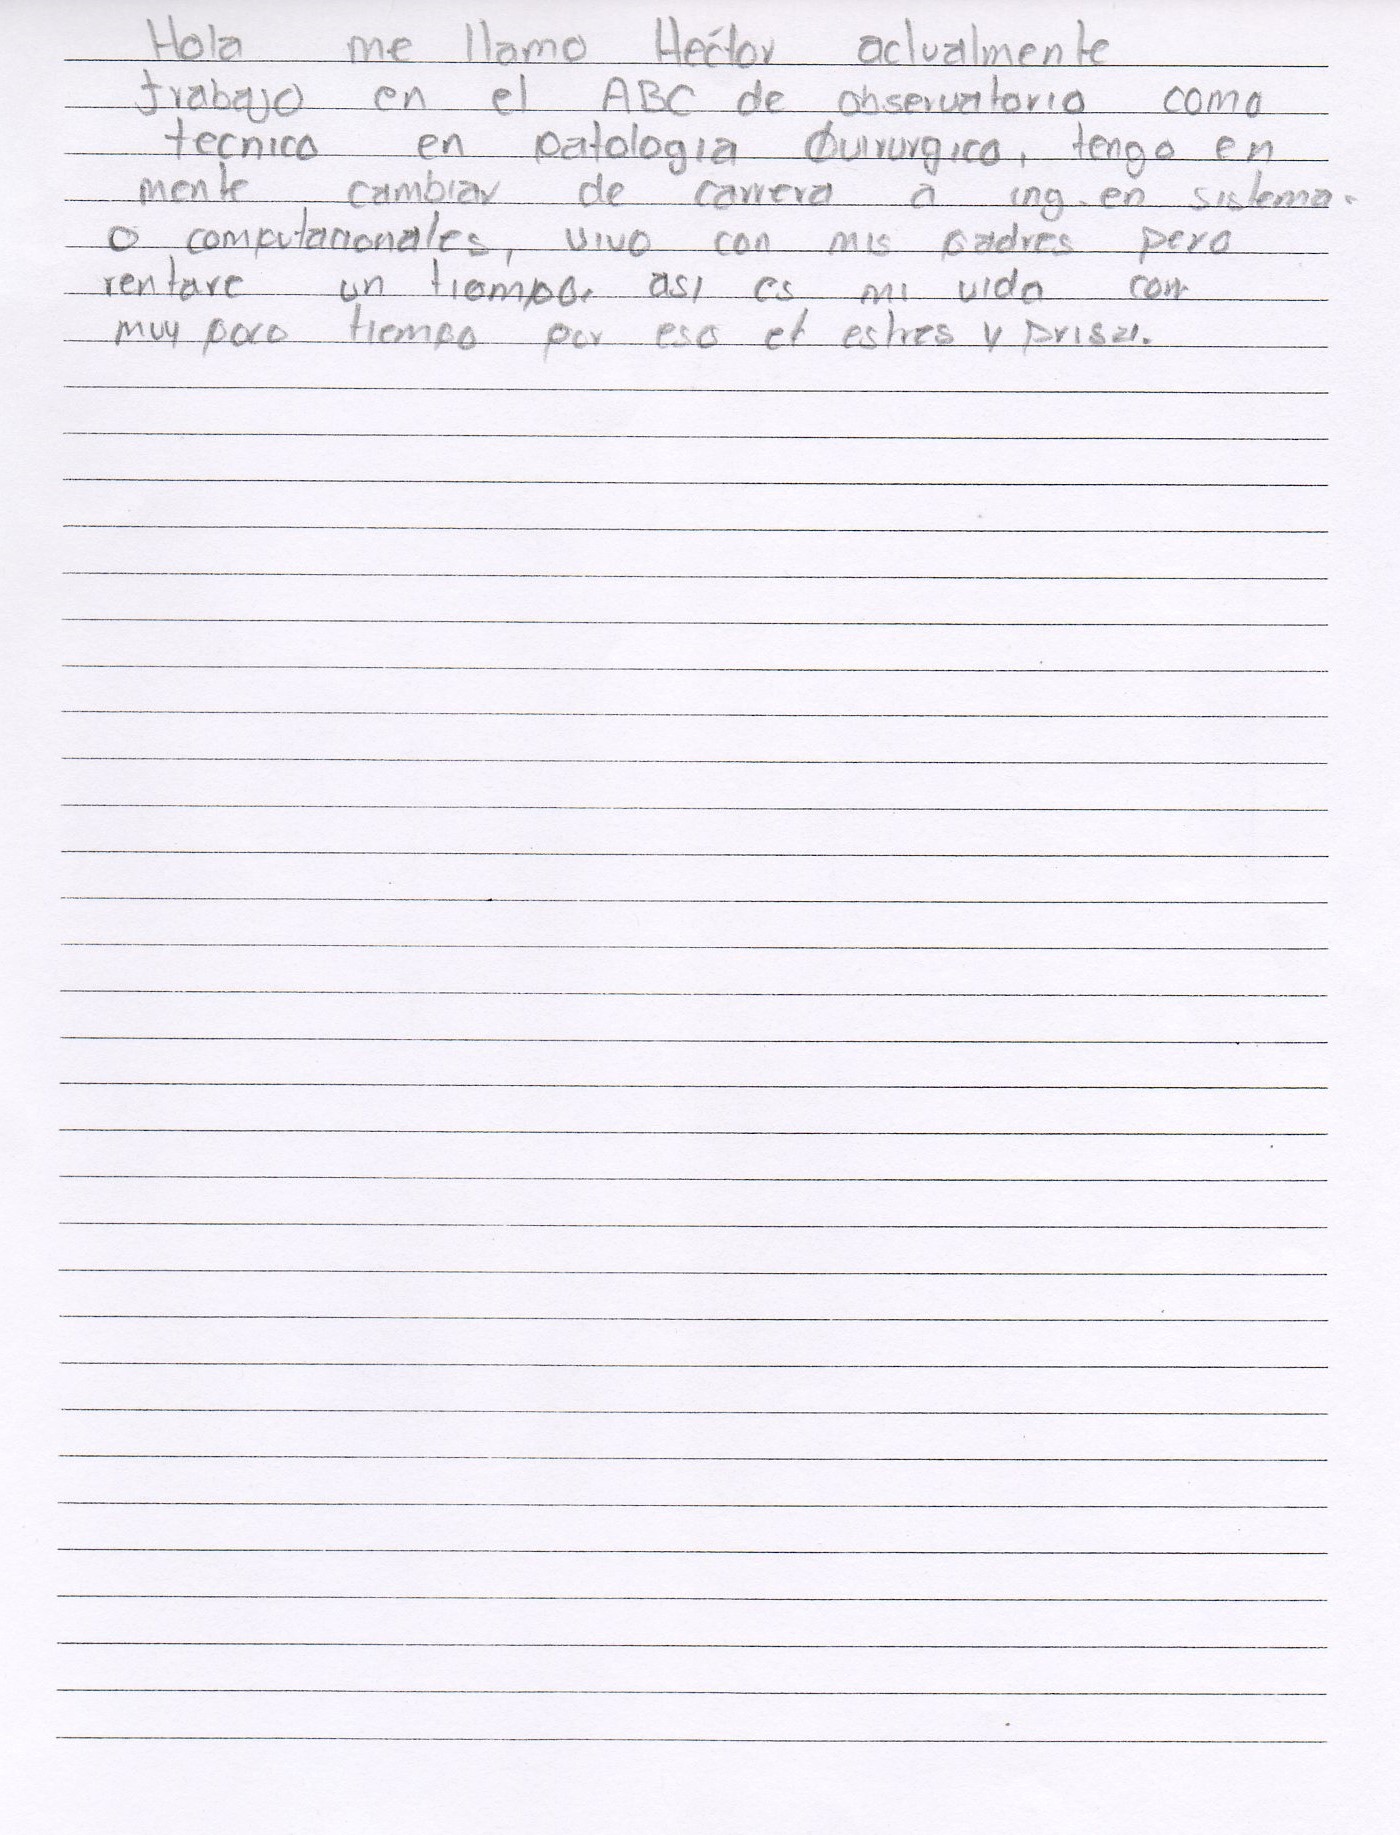 Hola me llamo Héctor actualmente
trabajo en el ABC de observatorio como
tecnico en patologia Quirurgica, tengo en
mente cambiar de carrera a ing. en sistema.
o computacionales, vivo con mis padres pero
rentare un tiempo. asi es mi vida con
muy poco tiempo por eso el estres y prisa.